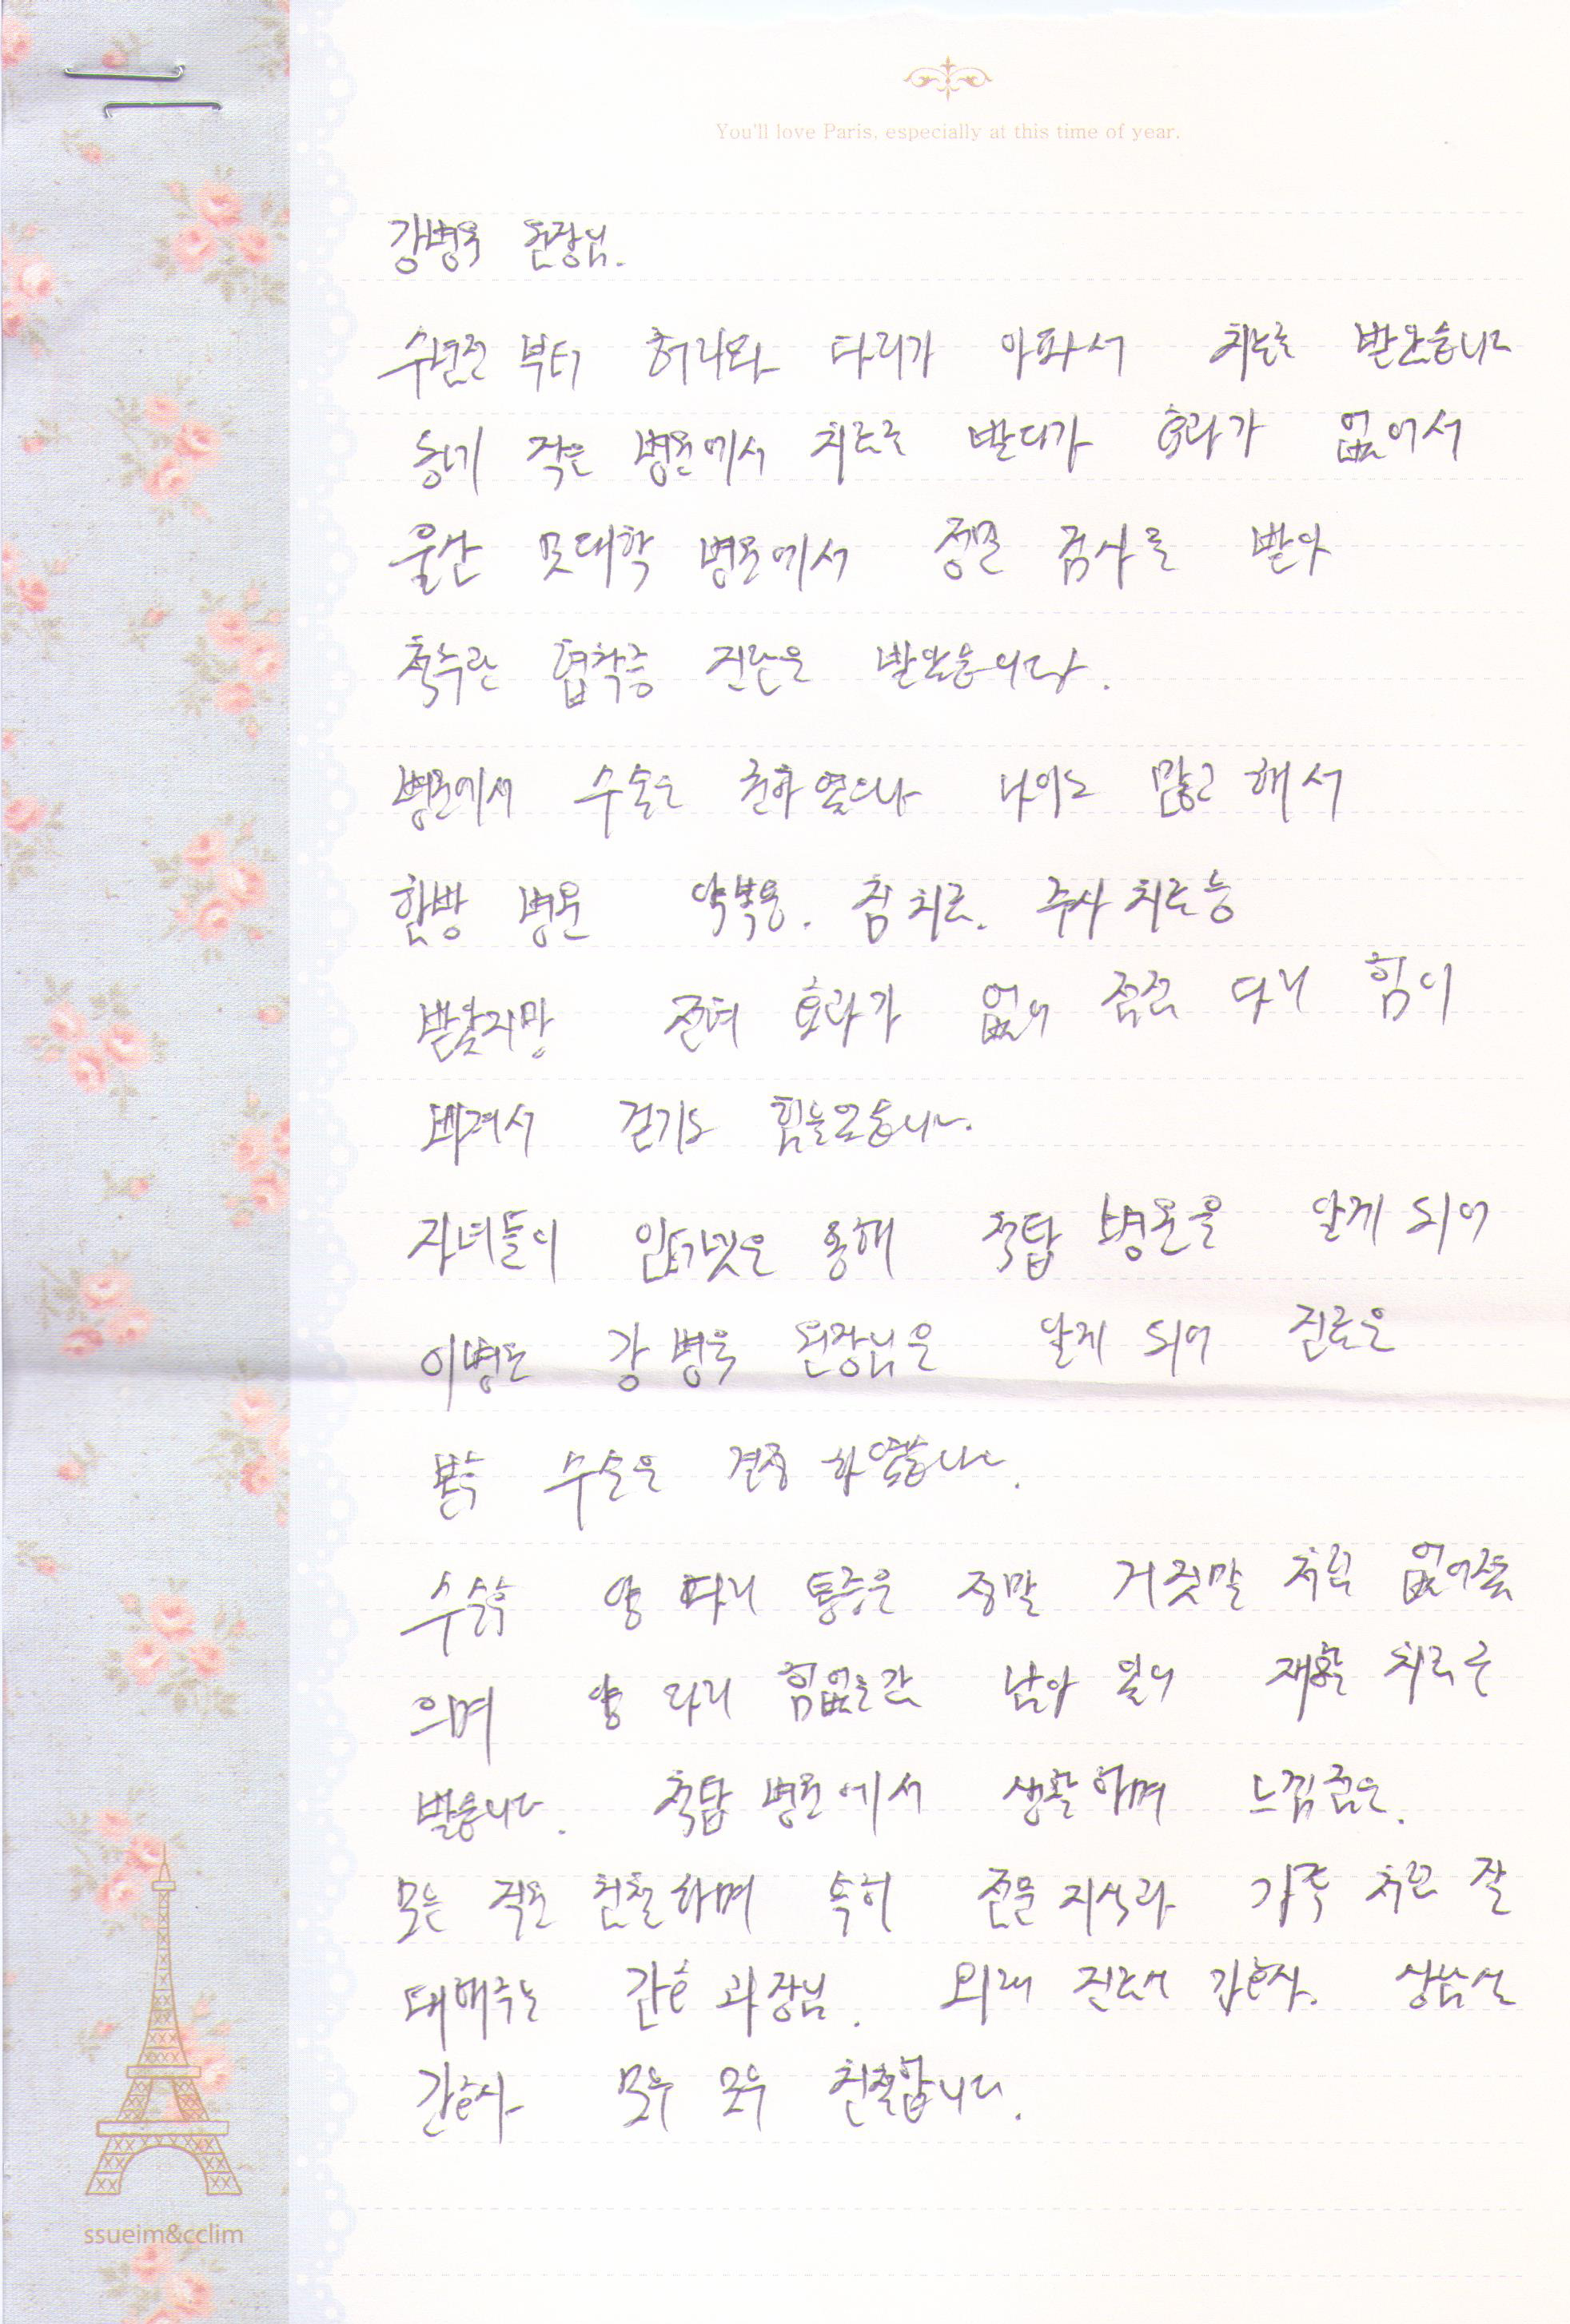 You'll love Paris, especially at this time of year.
강병욱 원장님.
수년전 부터 허리와 다리가 아파서 치료를 받았습니다
동네 작은 병원에서 치료를 받다가 효과가 없어서
울산 모대학 병원에서 정밀 검사를 받아
척추관 협착증 진단을 받았습니다.
병원에서 수술을 권하였으나 나이도 많고 해서
한방 병원 약복용. 침치료. 주사치료등
받았지만 전혀 효과가 없어 점점 다리 힘이
빠져서 걷기도 힘들었습니다.
자녀들이 인터넷을 통해 척탑 병원을 알게 되어
이병원 강병욱 원장님을 알게 되어 진료을
받후 수술을 결정 하였습니다.
수술후 양 다리 통증은 정말 거짓말 처럼 없어졌
으며 양 다리 힘없는감 남아 있어 재활 치료를
받습니다. 척탑 병원에서 생활하며 느낌점은.
모든 직원 친절하며 특히 전문지식과 가족 처럼 잘
대해주는 간호과장님. 외래 진료서 간호사. 상담실
간호사 모두 모두 친절합니다.
ssueim&cclim